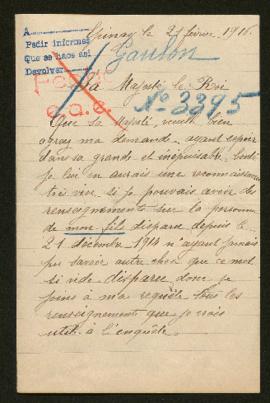 A
Pedir informes
Que se haga así
Devolver
Epinay le 27 février 1916.
Gauson
Sa Majesté le Roi
N° 3395
Que Sa Majesté veuille bien
ma demande, ayant espoir
dans sa grande et inépuisable bonté
je lui en aurais une reconnaissance
très vive si je pouvais avoir des
renseignements sur la personne
de mon fils disparu depuis le
21 décembre 1914 n'ayant jamais
pu savoir autre chose que ce mot
si vide disparu donc je
joins à ma requête tous les
renseignements que je crois
utile à l'enquête.